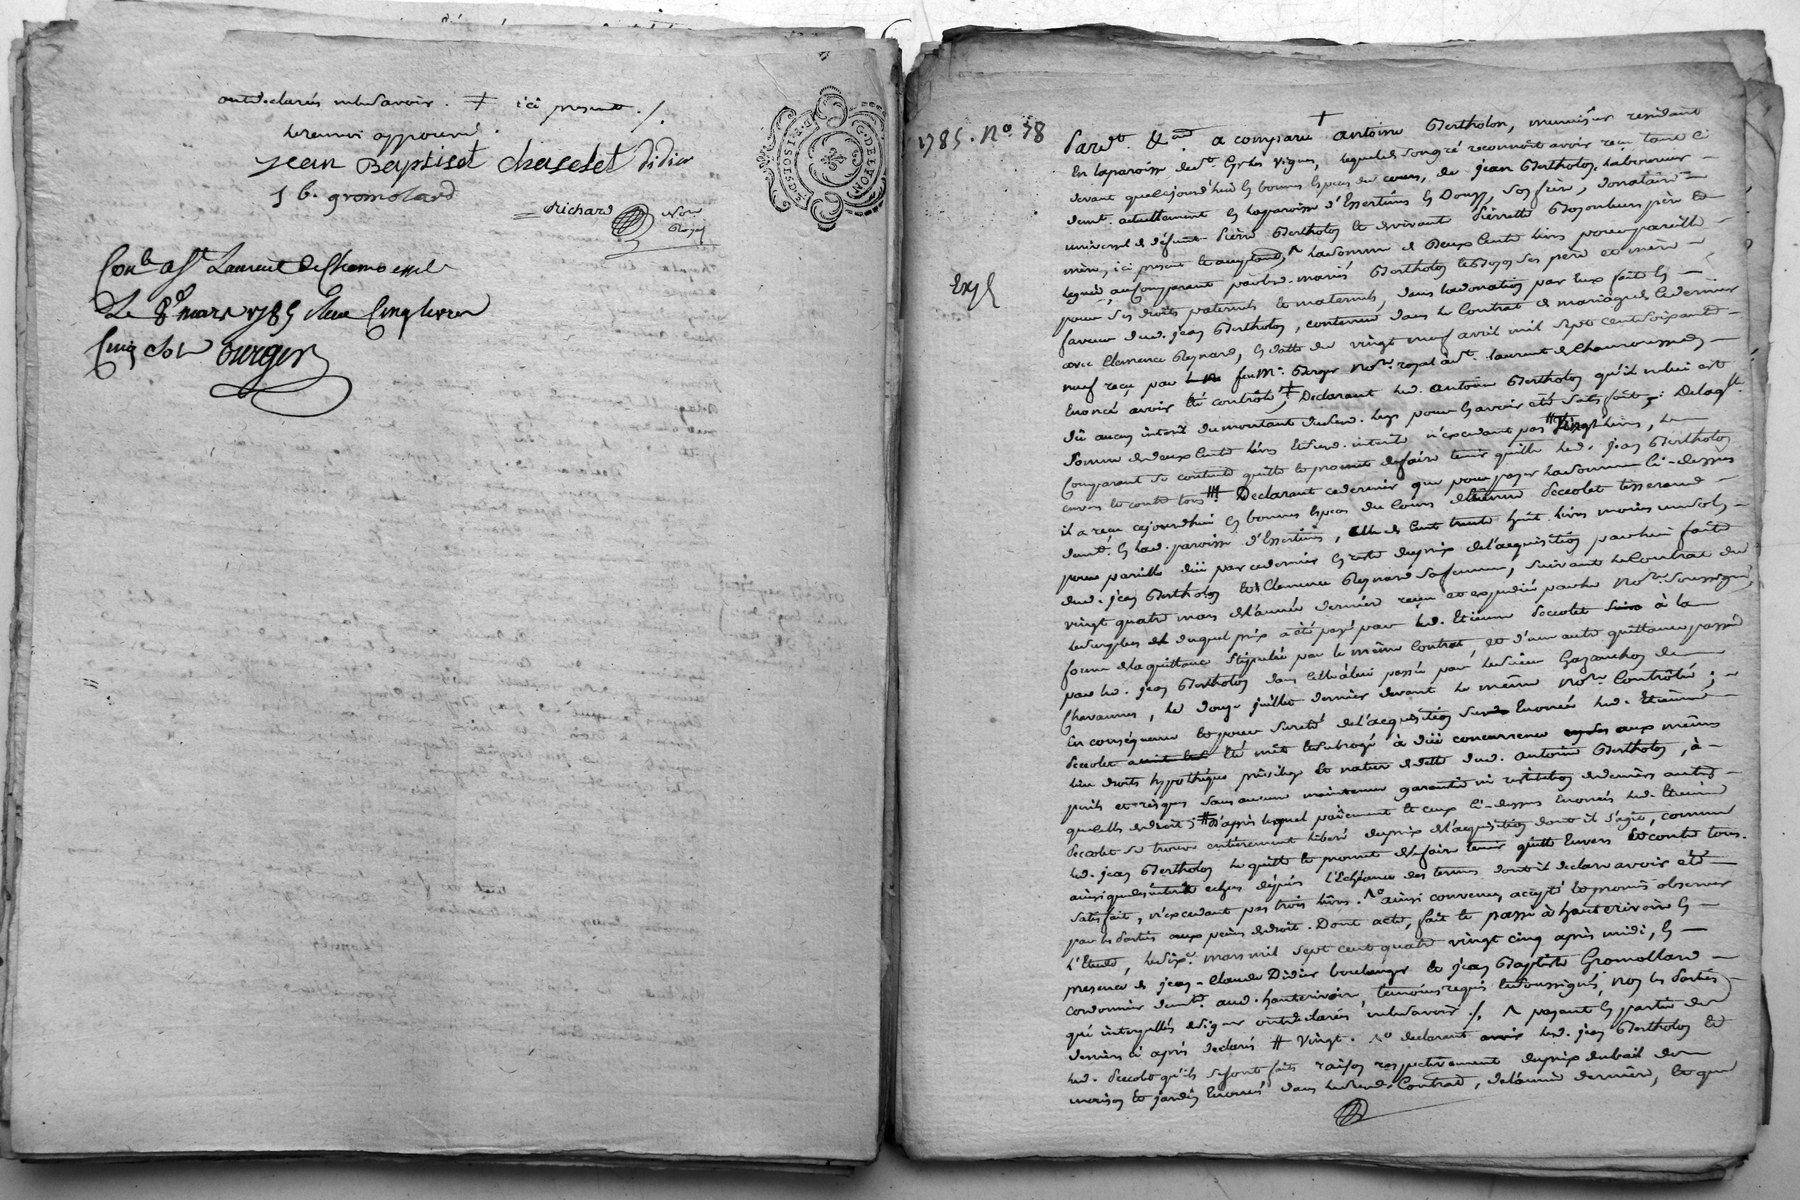 ont declarés ne le savoir. ǂ ici present ./.
le renvoi approuvé.
Jean Baptiset Chaselet Didier
J b. gromolard
Richard Nore Royal
G. DE LYON
Con.le a St. Laurent De Chamousset
Le 8e mars 1785 Recu Cinq livres
Cinq sols Burger
1785. No. 38
Expé
Pard.t &.a a comparu + antoine Bertholon, menuisier residant
En la paroisse de St. Cyr les vignes, lequel de son gré reconnoit avoir reçu tant ci
devant que cejourd'hui En bonnes Especes du cours, de jean Bertholon laboureur
demt. actuellement En la paroisse d'Essertines En Donzy, son frere, donataire
universel de défunt Pierre Bertholon et de vivante Pierrette pere et
mere, ici present ^ la somme de Deux Cents livres pour pareille
leguée au Comparant par lesd. mariés Bertholon ses père et mère
pour ses droits paternels et maternels, dans la donation par Eux faite En
faveur dud. jean Bertholon, contenue dans le Contrat de mariage de ce dernier
avec Clemence Reynard, En datte du vingt neuf avril mil sept cent soixante
neuf reçu par feu Mr. Berger Nore. royal à St. laurent de Chamousset
Enoncé avoir Eté contrôlé, ǂ Declarant led. antoine Bertholon qu'il ne lui est
dû aucun interêt du montant dud. legs pour En avoir été satisfait; De laqlle.
somme de deux Cents livres et desd. interêts n'excedant pas # livres, le
Comparant se contente quitte et promet de faire tenir quitte led. jean Bertholon
envers et contre tous ### Declarant ce dernier que pour payer la somme ci-dessus
il a reçu cejourdhui En bonnes Especes du Cours d'Etienne Peccolet tisserand
demt. En lad. paroisse d'Essertines, celle de Cent trente huit livres moins un sol
pour pareille düe par ce dernier En reste du prix de l'acquisition par lui faite
dud. jean Bertholon et Clemence Reynard sa femme, suivant le Contrat du
vingt quatre mars de l'année derniere reçu et expedié par le Nore. soussigné
le surplus duquel prix a été payé par led. Etienne Peccolet à la
forme de la quittance stipulée par le même Contrat, et d'une autre quittance passée
par led. jean Bertholon dans celle à lui passée par le sieur Gazanchon de
Chavannes, le douze juillet dernier devant le même Nore. Contrôlée;
En conséquence et pour sureté de l'acquisition Enoncée led. Etienne
Peccolet Eté mis et subrogé à düe concurrence aux mêmes
lieu droits hypothéques privileges et nature de dette dud. antoine Bertholon, à
perils et risques sans aucune maintenue garantie ni restitution de deniers autre
que celle de droit; # D'après lequel paiement et ceux Ci-dessus Enoncés led. Etienne
Peccolet se trouve entierement liberé du prix de l'acquisition dont il s'agit, comme
led. jean Bertholon le quitte et promet de faire tenir quitte Envers et contre tous.
ainsi que des interets echus depuis l'Echéance des termes dont il declare avoir été
satisfait, n'excedant pas trois livres. ainsi convenu, accepté et promis observer
par les Parties aux peines de droit. Dont acte, fait et passé à hauterivoire En
l'Etude, le six mars mil sept cent quatre vingt cinq après midi, En
presence de jean-Claude Didier boulanger et jean Baptiste Gromollard
cordonnier demt. aud. hauterivoire, temoins requis et soussignés, non les Parties
qui interpellées de signer ont declarés ne le savoir ./. ^ payant En partie des
deniers ci après declarés # Vingt. declarant led. jean Bertholon et
led. Peccolet qu'ils se sont faits raison respectivement du prix du bail de
maison et jardin Enoncés dans led. Contrat, de l'année derniere, et que